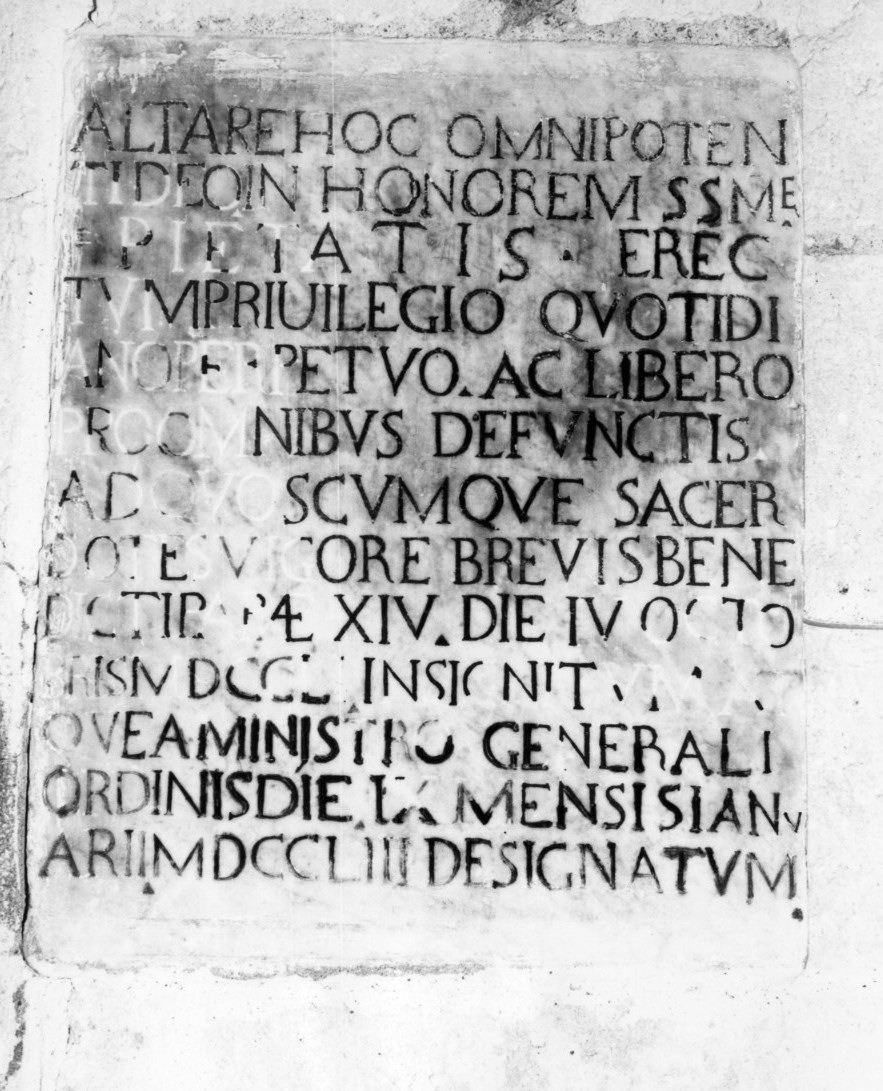 ALTARE HOC OMNIPOTEN
TI DEO IN HONOREM SSMĘ
PIETATIS · EREC
TVM PRIUILEGIO QVOTIDI
ANO PERPETVO. AC LIBERO
PRO OMNIBVS DEFVNCTIS
AD QVOSCVMQVE SACER
DOTES VIGORE BREVIS BENE
DICTI PAPÆ XIV. DIE IV OCTO
BRIS MDCCLI INSIGNITVM AT
QVE A MINISTRO GENERALI
ORDINIS DIE IX MENSIS IANV
ARII MDCCLIII DESIGNATVM